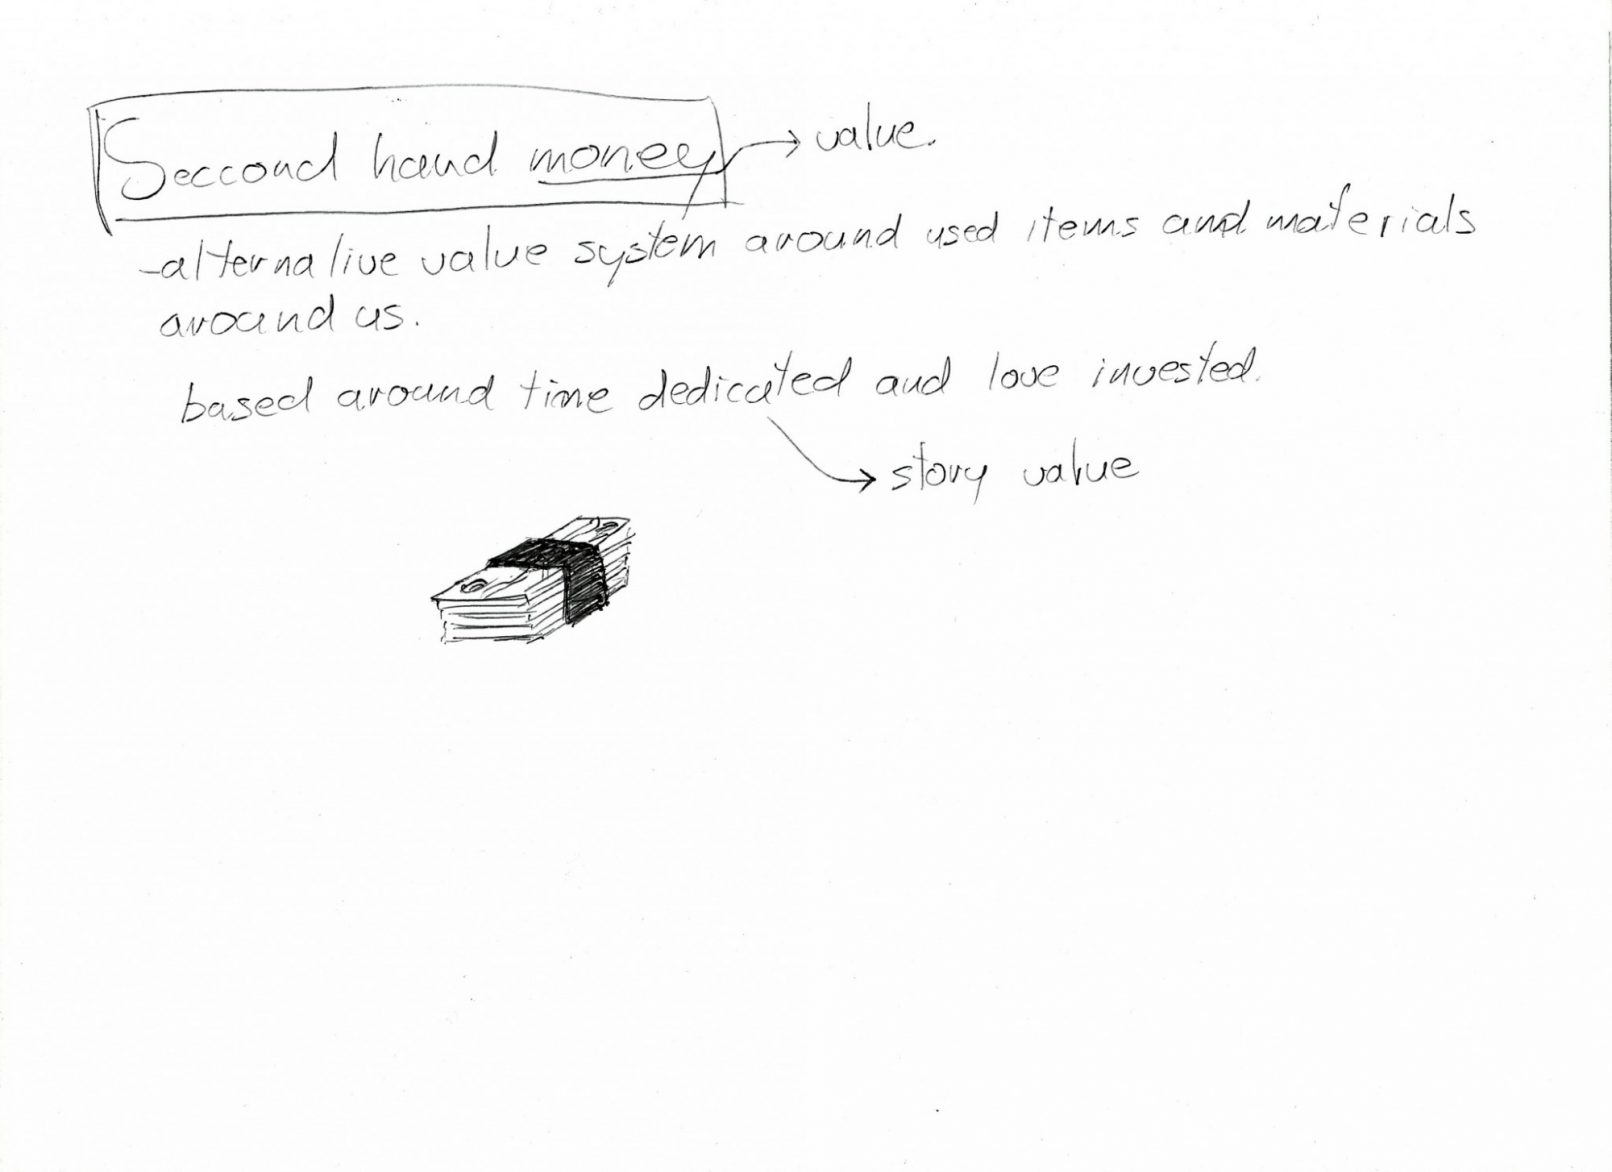 Seccond hand money → value.
-alternative value system around used items and materials
around us.
based around time dedicated and love invested.
→ story value